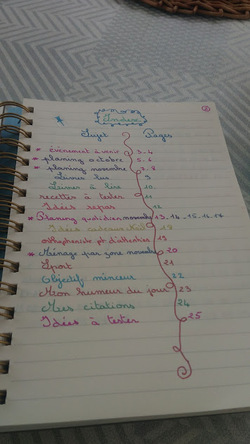 Index
Sujet Pages
* évènement à venir 3-4
* planning octobre 5-6
* planning novembre 7-8
Livres lus 9
Livres à lire 10
recettes à tester 11
Idées repas 12
* Planning quotidien novembre 13-14-15-16-17
Idées cadeaux Noël 18
orthophoniste pt d'attentes 19
* Ménage par zone novembre 20
Sport 21
Objectif minceur 22
Mon humeur du jour 23
Mes citations 24
Idées à tester 25